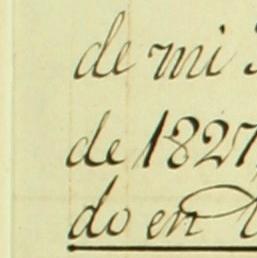 de mi
de 1827,
do en